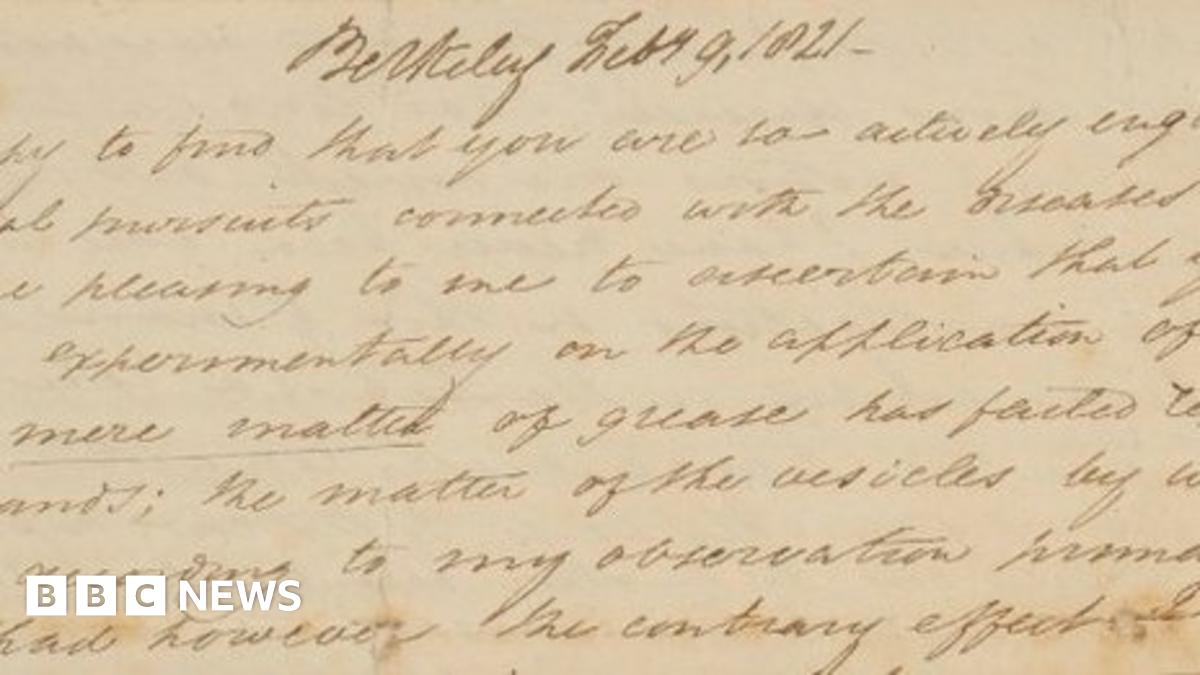 Berkeley Feby 9, 1821-
py to find that you are so actively eng
al pursuits connected with the diseases
e pleasing to me to ascertain that
experimentally on the application of
mere matter of grease has failed
ands; the matter of the vesicles by
to my observation
had however the contrary effect. I
BBC NEWS